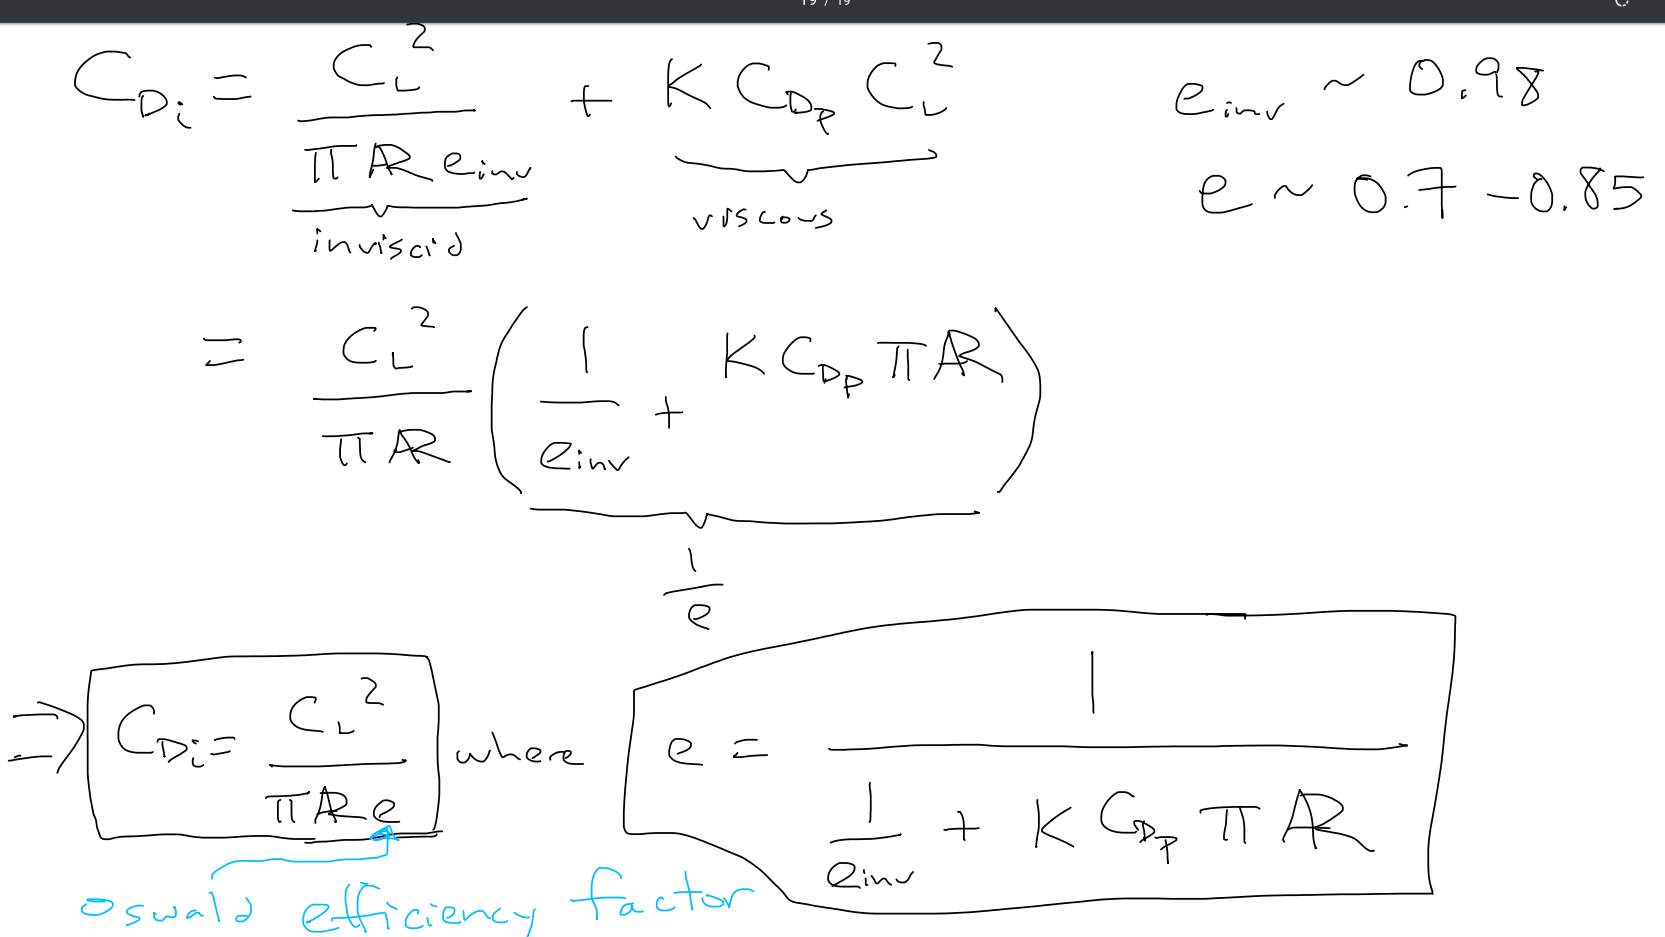 19 / 19
C_{D_i} = C_L^2 / (π AR e_{inv}) + K C_{D_p} C_L^2
e_{inv} ~ 0.98
inviscid
viscous
e ~ 0.7 - 0.85
= C_L^2 / (π AR) ( 1 / e_{inv} + K C_{D_p} π AR )
1 / e
⇒ C_{D_i} = C_L^2 / (π AR e) where e = 1 / ( 1 / e_{inv} + K C_{D_p} π AR )
oswald efficiency factor